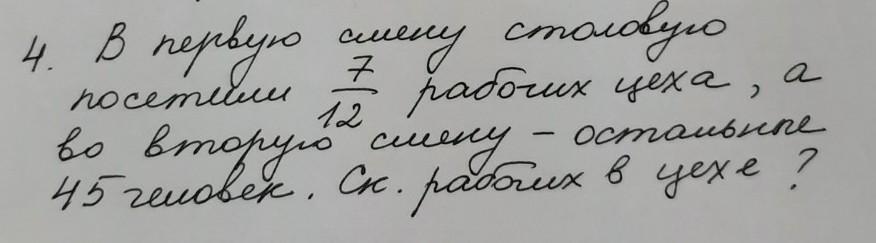 4. В первую смену столовую
посетили 7/12 рабочих цеха, а
во вторую смену – остальные
45 человек. Ск. рабочих в цехе?